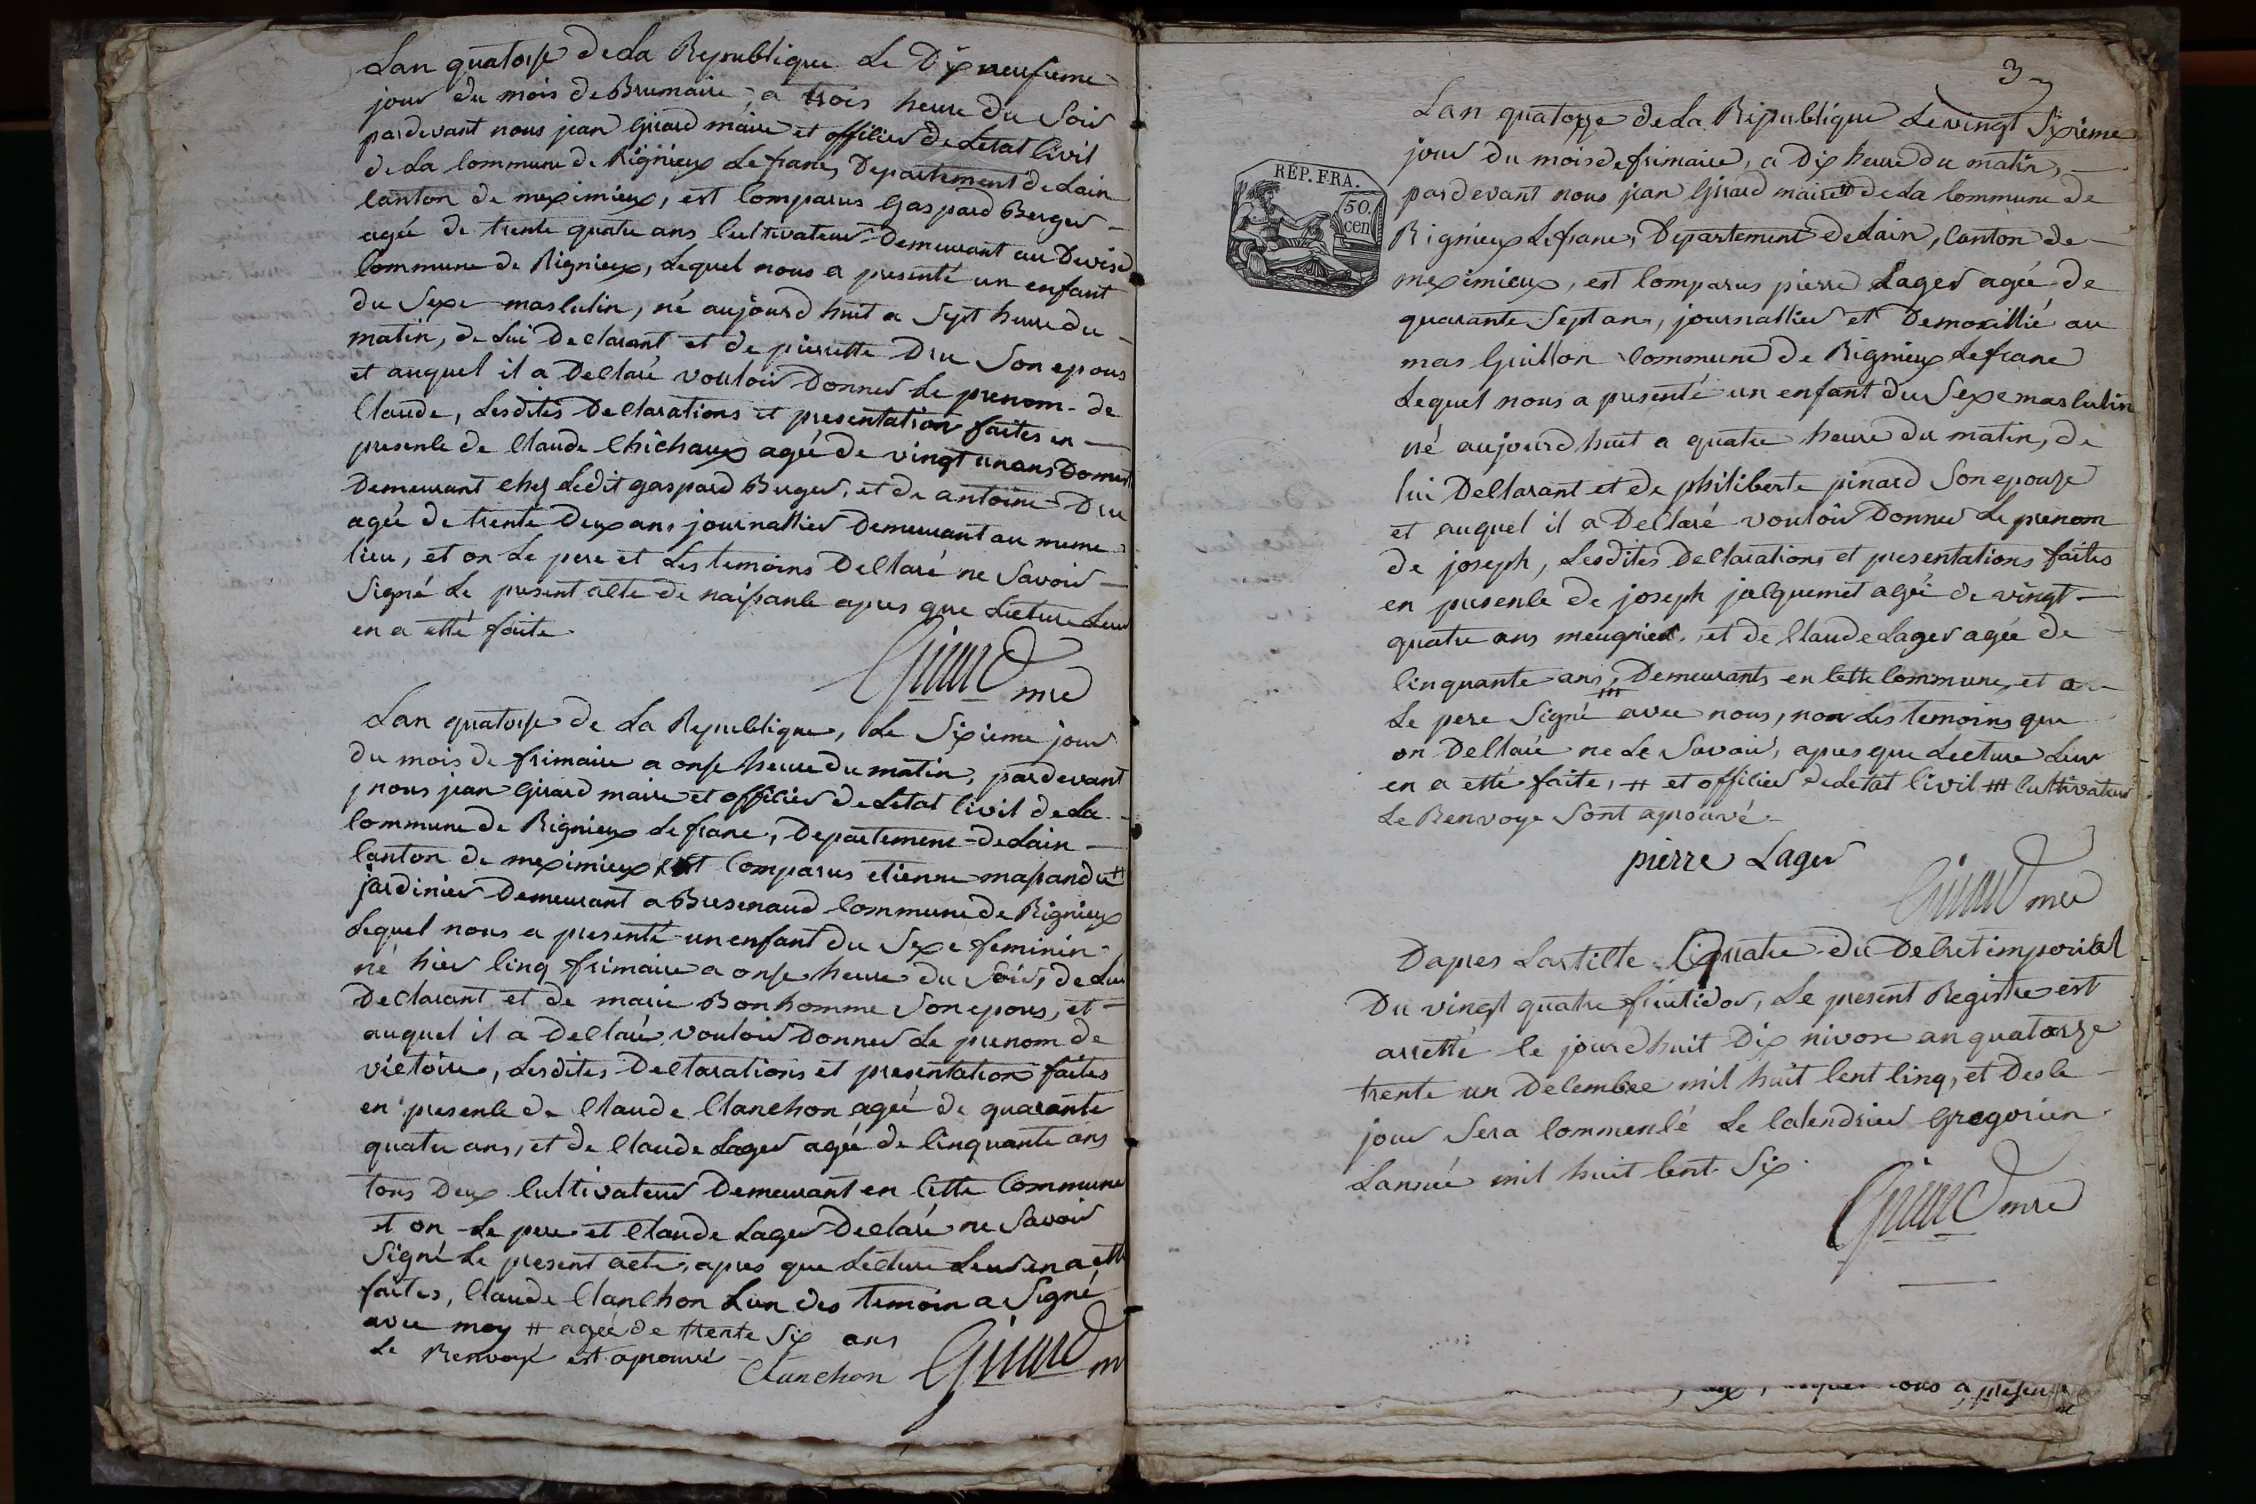 Lan quatorse de La Republique Le Dixneufieme
jour du mois de Brumaire, a trois heure du Soir
pardevant nous jean Girard maire et officier de Letat Civil
de La Commune de Rignieux Lefranc, Departement de Lain
Canton de meximieux, est Comparus gaspard Berger
agée de trente quatre ans Cultivateur Demeurant au
Commune de Rignieux, Lequel nous a presenté un enfant
du Sexe masculin, né aujourd huit a Sept heure du
matin, de Lui Declarant et de pierrette Dru Son epous
et auquel il a Declaré vouloir Donner Le prenom de
Claude, Lesdites Declarations et presentation faites en
presence de Claude Chichaux agée de vingt un ans Domest
Demeurant chez Ledit gaspard Berger, et de antoine Dru
agée de trente Deux ans journallier Demeurant au meme
lieu, et on Le pere et Les temoins Declaré ne Savoir
Signé Le present acte de naissance apres que Lecture Leur
en a etté faite
Girard mre
Lan quatorse de La Republique, Le Sixieme jour
du mois de frimaire a onse heure du matin, pardevant
nous jean Girard maire et officier de Letat Civil de La
Commune de Rignieux Lefranc, Departement de Lain
Canton de meximieux est Comparus etienne massandu #
jardinier Demeurant a Bresenaud Commune de Rignieux
Lequel nous a presenté un enfant du Sexe feminin
né hier Cinq frimaire a onse heure du Soir, de Lui
Declarant et de marie Bonhomme Son epous, et
auquel il a Declaré vouloir Donner Le prenom de
victoire, Lesdites Declarations et presentation faites
en presence de Claude Clanchon agée de quarante
quatre ans, et de Claude Lager agée de Cinquante ans
tous Deux Cultivateur Demeurant en Cette Commune
et on Le pere et Claude Lager Declaré ne Savoir
Signé Le present acte, apres que Lecture Leur en a etté
faites, Claude Clanchon Lun des temoin a Signé
avec moy # agée de trente Six ans
Le Renvoyé est aprouvé
Clanchon Girard m
3
REP. FRA.
50.
cen
Lan quatorze de La Republique Le vingt Sixieme
jour du mois de frimaire, a Dix heure du matin,
pardevant nous jean Girard maire # de La Commune de
Rignieux Lefranc, Departement de Lain, Canton de
meximieux, est Comparus pierre Lager agée de
quarante Sept ans, journallier et Demoxillié au
mas Guillon Commune de Rignieux Lefranc
Lequel nous a presenté un enfant du Sexe masculin
né aujourd huit a quatre heure du matin, de
lui Declarant et de philiberte pinard Son epouze
et auquel il a Declaré vouloir Donner Le prenom
de joseph, Lesdites Declarations et presentations faites
en presence de joseph jacquemet agée de vingt
quatre ans meugnier, et de Claude Lager agée de
Cinquante ans, ### Demeurants en Cette Commune, et a
Le pere Signé avec nous, non Les temoins que
on Declaré ne Le Savoir, apres que Lecture Leur
en a etté faite, # et officier de Letat Civil ### Cultivateur
Le Renvoye Sont aprouvé
pierre Lager
Girard mre
Dapres Lartilte quatre du Decret imperial
Du vingt quatre fructidor, Le present Registre est
arretté le jourd huit Dix nivose an quatorze
trente un Decembre mil huit Cent Cinq, et Desce
jour Sera Commencé Le Calendrier Gregorien
Lannée mil huit Cent Six
Girard mre
nous a presenté